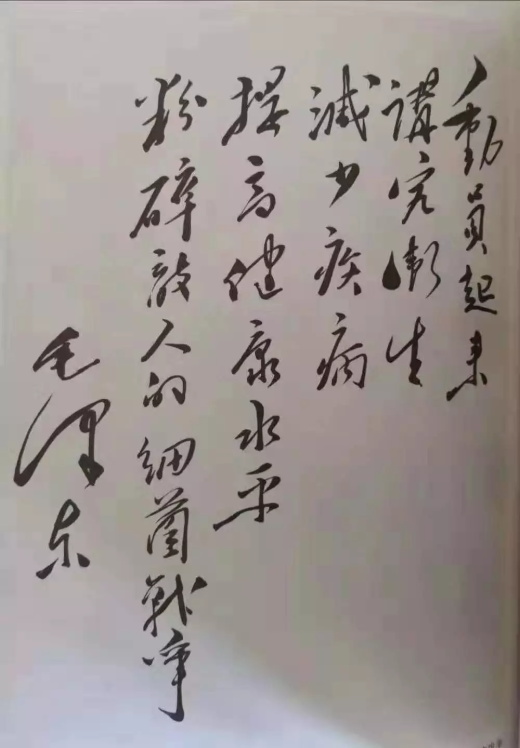 動員起来
講究衛生
減少疾病
提高健康水平
粉碎敵人的細菌戰争
毛澤东